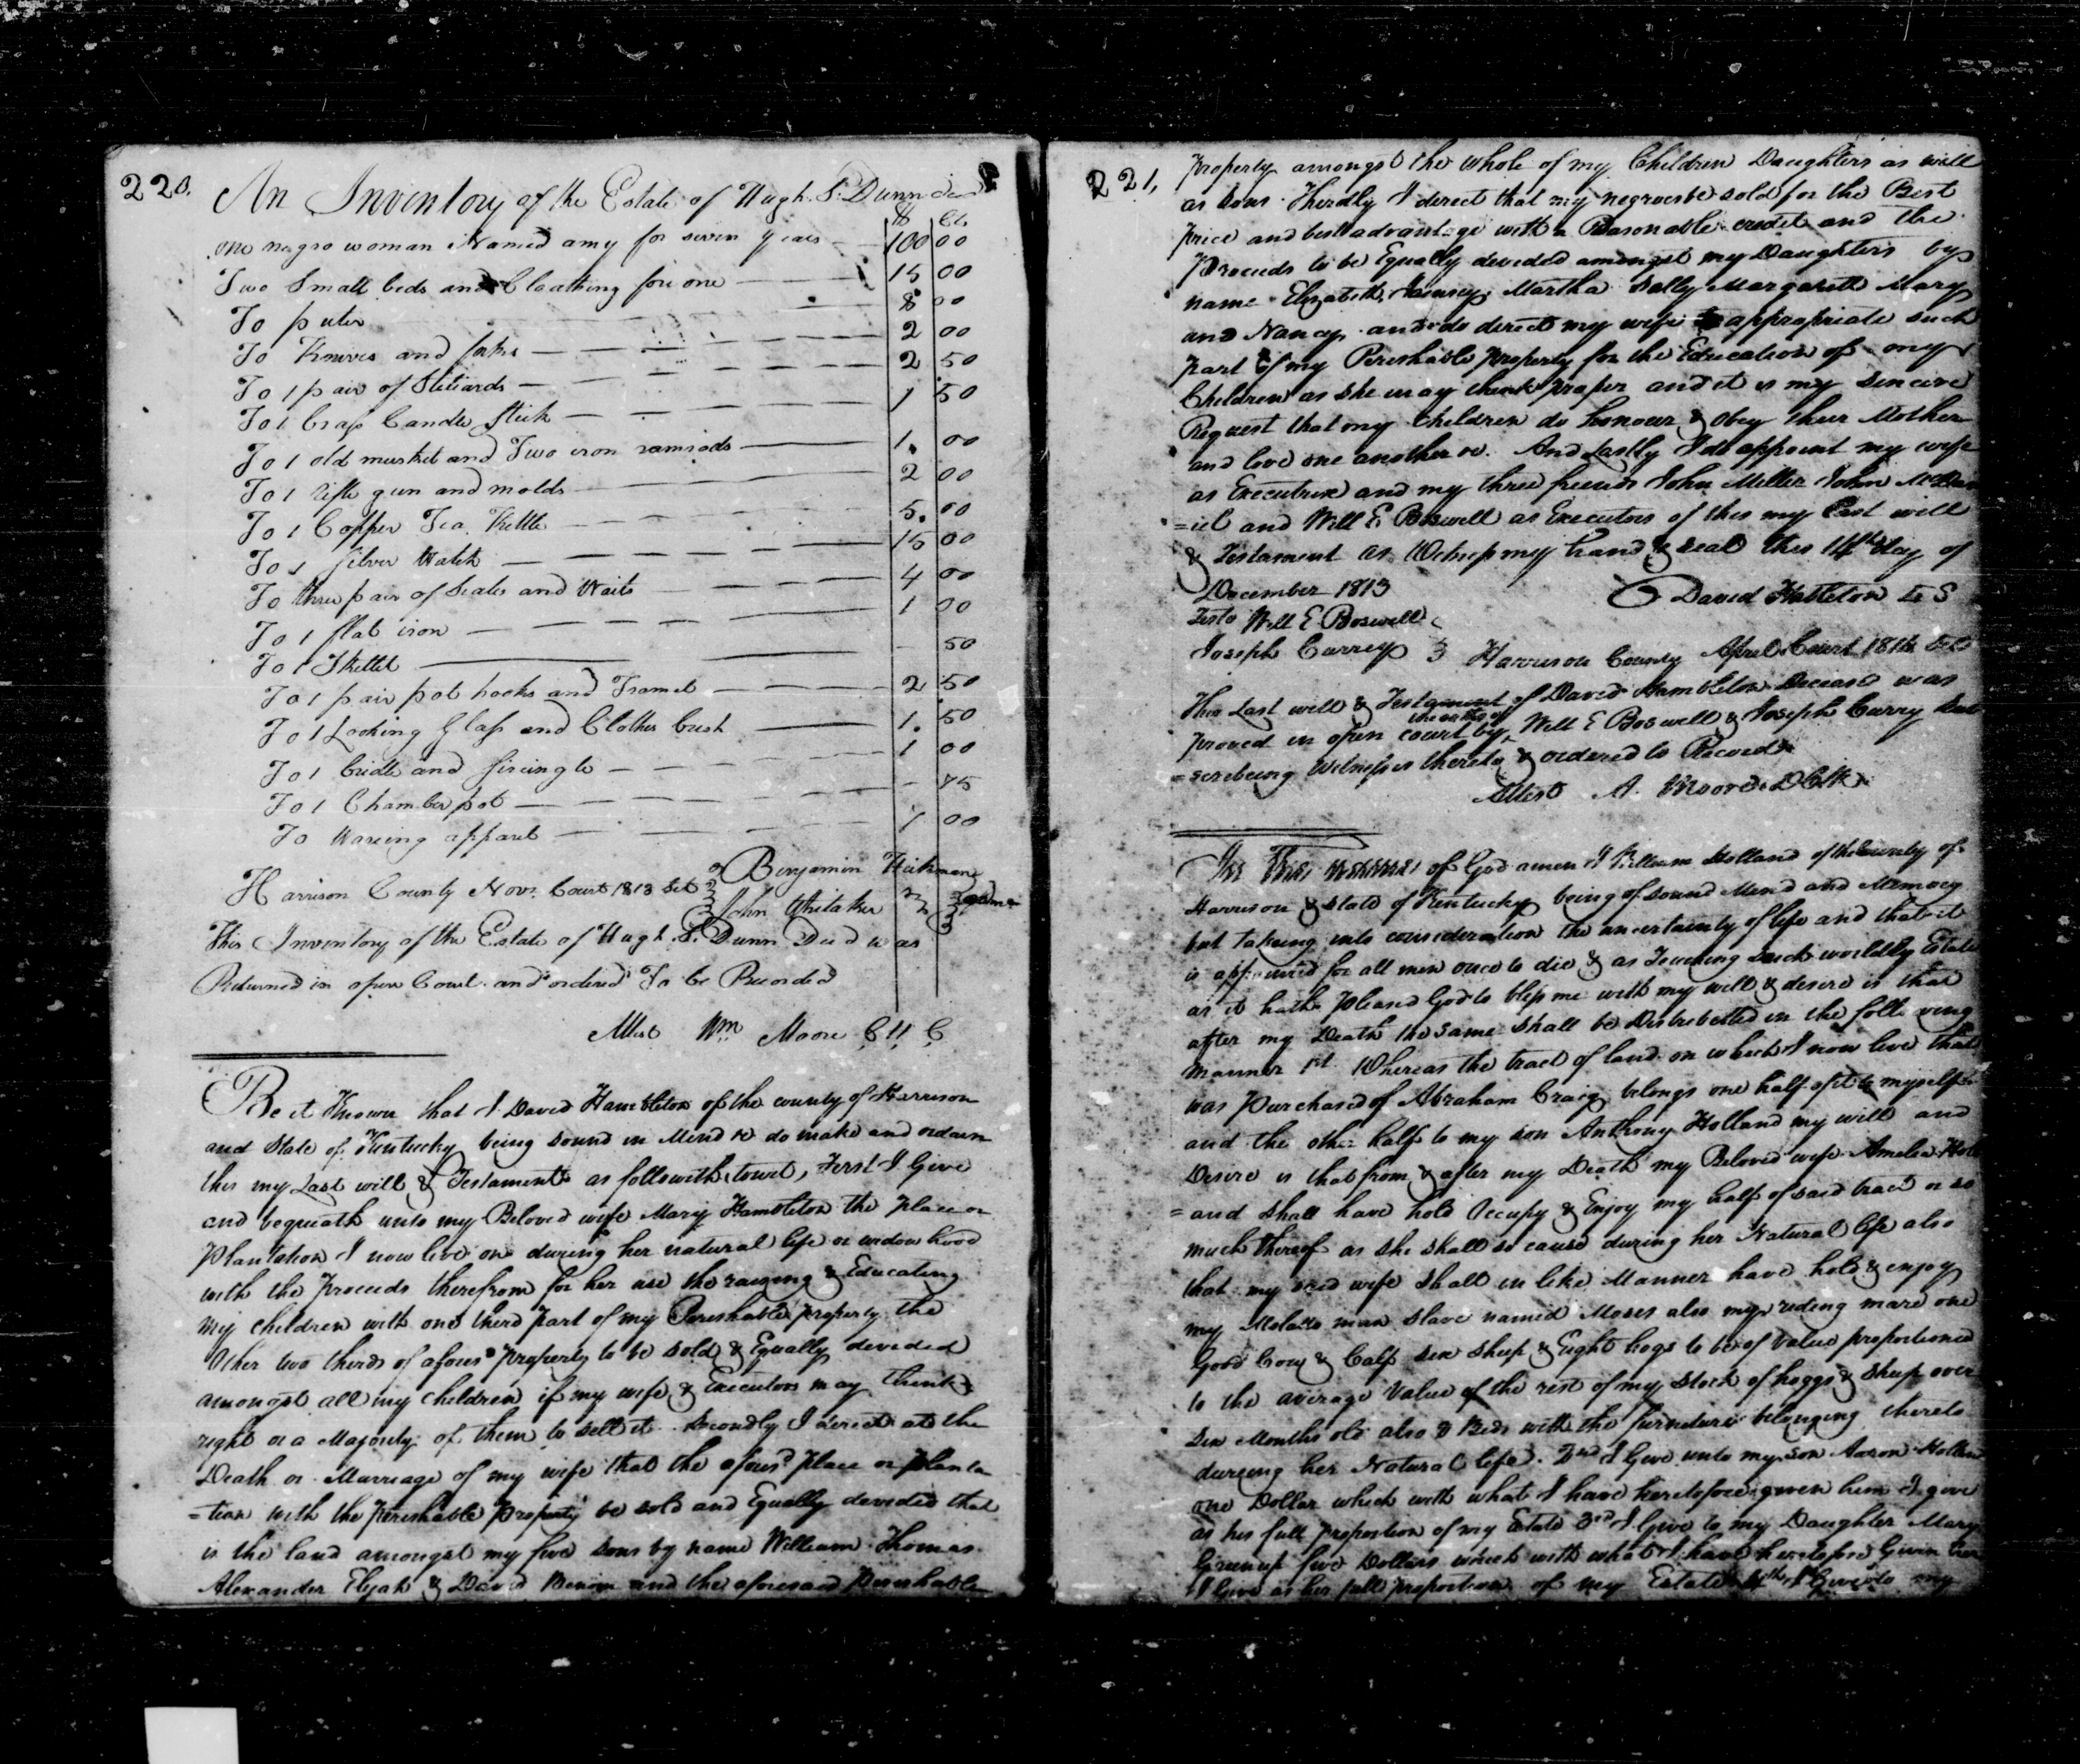 220.
An Inventory of the Estate of Hugh S. Dunn decd
$ Cts
one negro woman Named amy for seven years 100 00
Two Small beds and Cloathing for one 15 00
To puter 8 00
To Knives and forks 2 00
To 1 pair of Stiliards 2 50
To 1 brass Candle Stick 1 50
To 1 old musket and Two iron ramrods 1. 00
To 1 rifle gun and molds 2 00
To 1 Copper Tea Kettle 5. 00
To 1 Silver Watch 15 00
To three pair of Scales and Waits 4 00
To 1 flat iron 1 00
To 1 Skillet 50
To 1 pair pot hooks and Tramel 2 50
To 1 Looking Glass and Clothes brush 1. 50
To 1 bridle and Sircingle 1 00
To 1 Chamber pot 75
To Waring apparel 7 00
Benjamin Hickman
Harrison County Novr. Court 1813 Sct
John Whitaker
This Inventory of the Estate of Hugh S. Dunn Decd was
Returned in open Court and ordered To be Recorded
Attest Wm Moore C H C
Be it Known that I David Hambleton of the county of Harrison
and State of Kentucky being sound in Mind &c do make and ordain
this my Last will & Testament as followeth, towit, First I Give
and bequeath unto my Beloved wife Mary Hambleton the place or
Plantation I now live on during her natural life or widow hood
with the proceeds therefrom for her use the raising & Educating
my children with one third part of my Perishable property the
other two thirds of aforesd property to be sold & Equally devided
amongst all my children if my wife & Executors may think
right or a Majority of them to sell it. Secondly I direct at the
Death or Marriage of my wife that the aforesd place or planta
=tion with the perishable property be sold and Equally devided that
is the land amongst my five sons by name William Thomas
Alexander Elijah & David and the aforesaid perishable
221.
Property amongst the whole of my Children Daughters as well
as sons. Thirdly I direct that my negroes be sold for the Best
price and best advantage with a Reasonable credit and the
Proceeds to be Equally devided amongst my Daughters by
name Elizabeth, Martha Sally Margarett Mary
and Nancy and do direct my wife to appropriate such
part of my Perishable property for the Education of my
Children as she may think proper and it is my sincere
Request that my Children do honour & obey their Mother
and love one another &c. And Lastly I do appoint my wife
as Executrix and my three friends John Miller John McDan
=iel and Will E. Boswell as Executors of this my Last will
& Testament as Witness my hand & seal this 14th day of
December 1813
David Hableton L S
Teste Will E Boswell
Joseph Currey
Harrison County April Court 1814 Sct
This Last will & Testament of David Hambleton Deceasd was
proved in open court by the oaths of Will E Boswell & Joseph Curry Sub
=scribeing Witnesses thereto & ordered to Record
Attest A. Moore D Clk
In The name of God amen I William Holland of the County of
Harrison & state of Kentucky being of sound Mind and Memory
but takeing into consideration the uncertainty of life and that it
is appointed for all men once to die & as Touching such worldly Estate
as it hath pleased God to bless me with my will & desire is that
after my Death the same shall be Distributed in the following
manner 1st. Whereas the tract of land on which I now live that
was purchased of Abraham Craig belongs one half of it to myself
and the other half to my son Anthony Holland my will and
Desire is that from & after my Death my Beloved wife Amelia Holl
=and shall have hold Occupy & Enjoy my half of said tract or so
much thereof as she shall so cause during her Natural life also
that my said wife shall in like Manner have hold & enjoy
my Molatto man slave named Moses also my riding mare one
Good Cow & Calf six sheep & Eight hogs to be of value proportioned
to the average value of the rest of my stock of hoggs & sheep over
six Months old also 3 Beds with the furniture belonging thereto
dureing her Natural life. 2nd I Give unto my son Aaron Holland
one Dollar which with what I have heretofore given him I give
as his full proportion of my Estate 3rd I Give to my Daughter Mary
Greenup five Dollars which with what I have heretofore Given her
I Give as her full proportion of my Estate 4th I Give to my